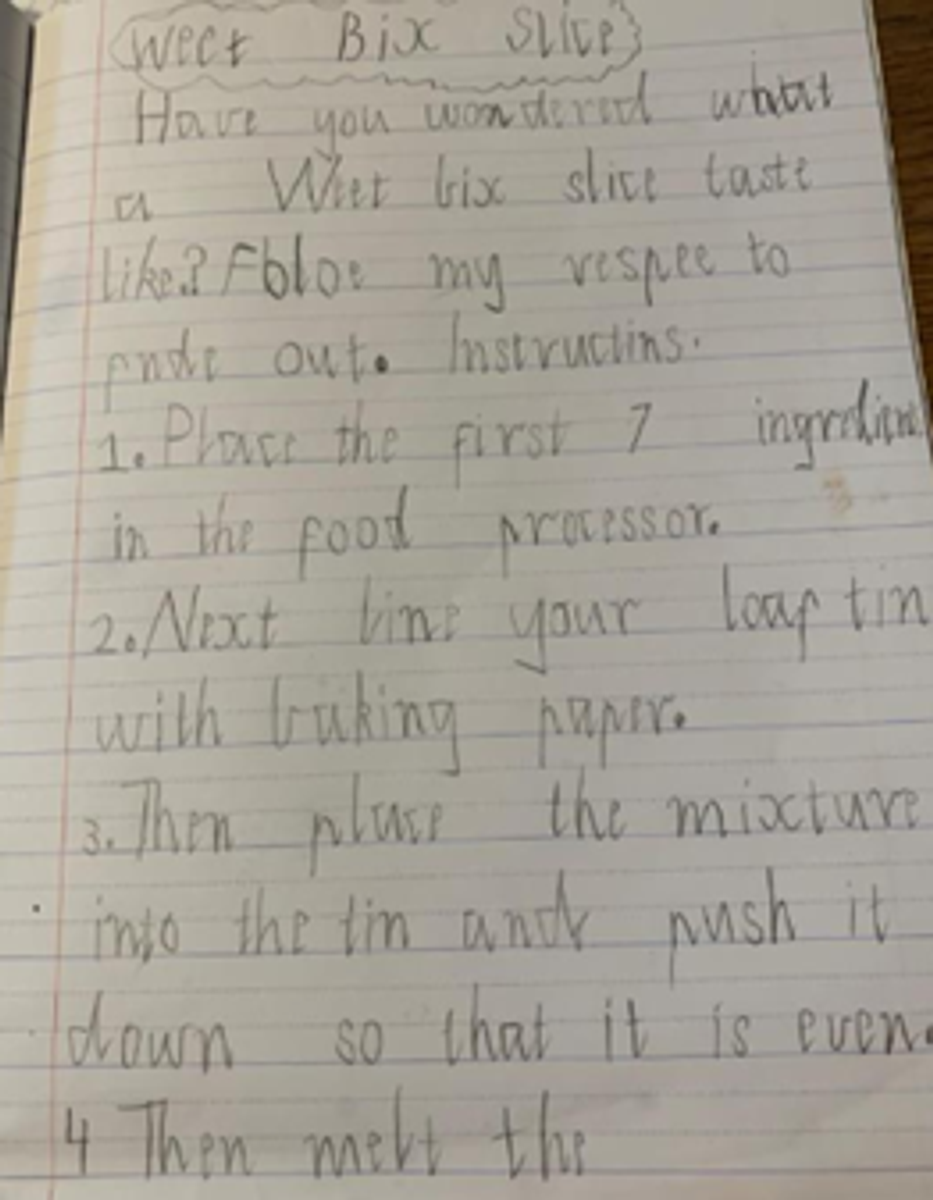 Weet Bix Slice
Have you wondered what
a Weet bix slice taste
like? Foloe my respee to
fnde out. Instructins.
1. Place the first 7 ingredient
in the food processor.
2. Next line your loaf tin
with baking paper.
3. Then place the mixture
into the tin and push it
down so that it is even.
4 Then melt the